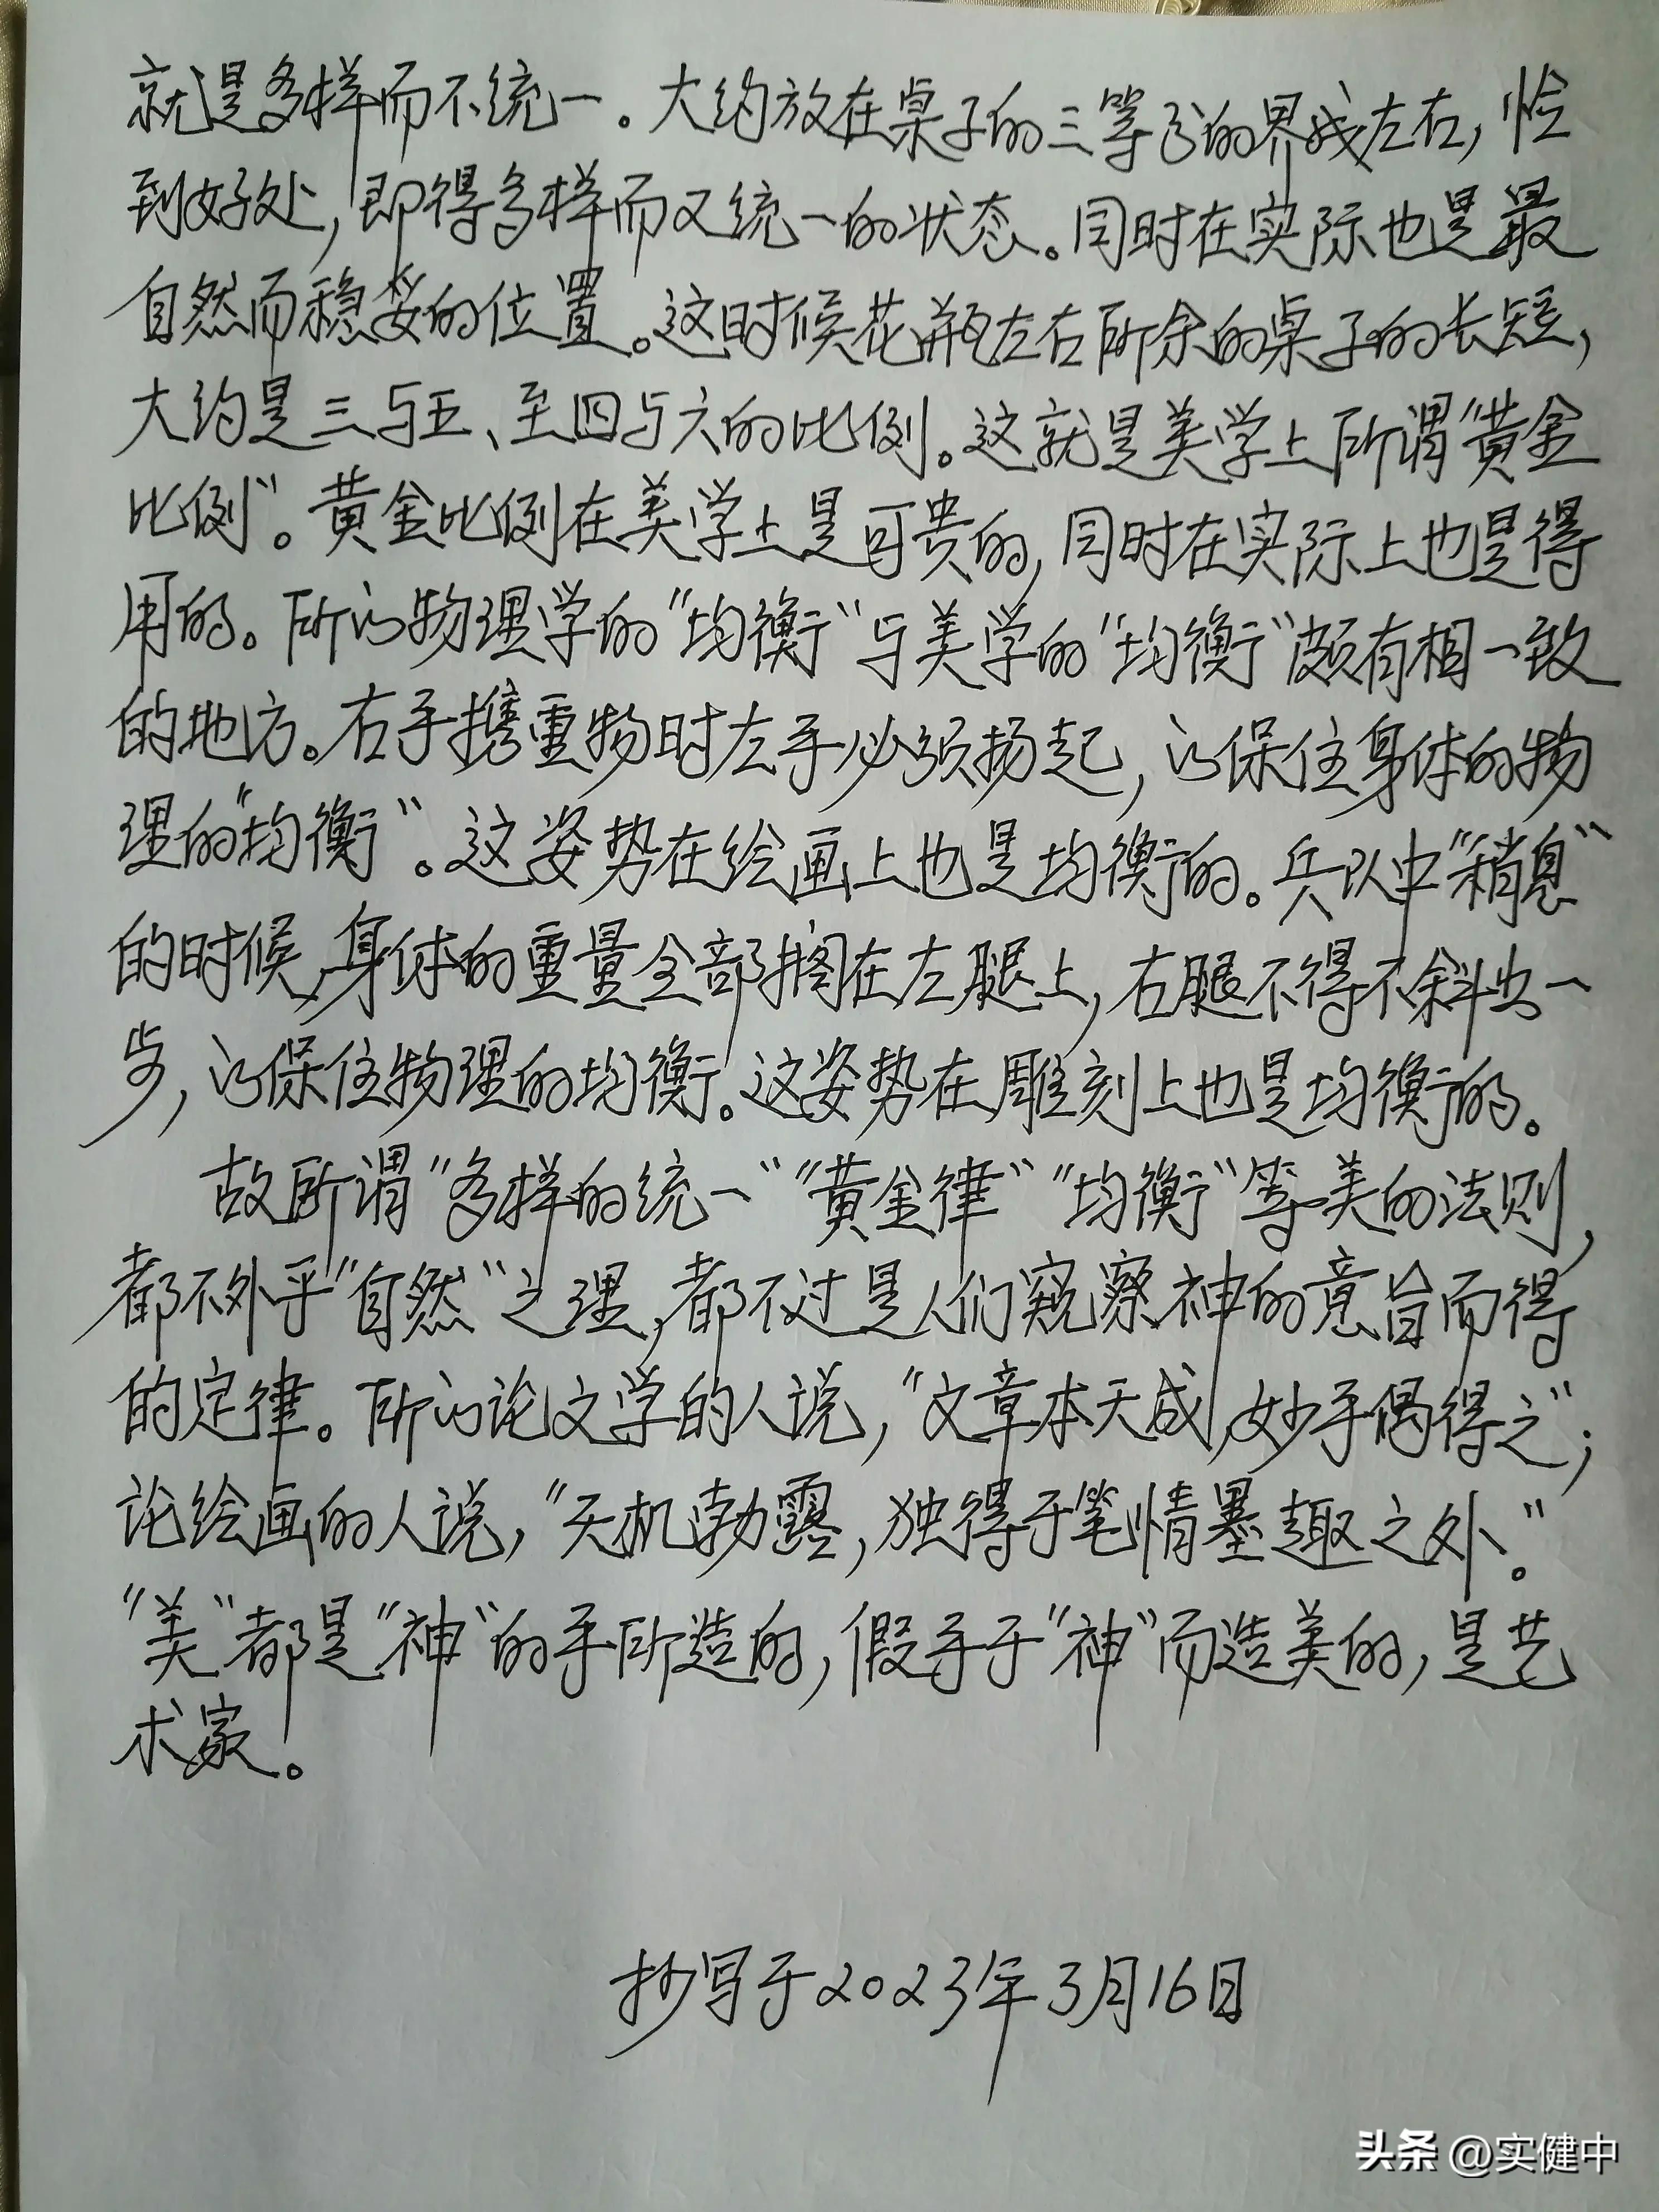 就是多样而不统一。大约放在桌子的三等分的界线左右，恰
到好处，即得多样而又统一的状态。同时在实际也是最
自然而稳妥的位置。这时候花瓶左右所余的桌子的长短，
大约是三与五、至四与六的比例。这就是美学上所谓“黄金
比例”。黄金比例在美学上是可贵的，同时在实际上也是得
用的。所以物理学的“均衡”与美学的“均衡”颇有相一致
的地方。右手携重物时左手必须扬起，以保住身体的物
理的“均衡”。这姿势在绘画上也是均衡的。兵队中“稍息”
的时候，身体的重量全部搁在左腿上，右腿不得不斜出一
步，以保住物理的均衡。这姿势在雕刻上也是均衡的。
故所谓“多样的统一”“黄金律”“均衡”等美的法则，
都不外乎“自然”之理，都不过是人们窥察神的意旨而得
的定律。所以论文学的人说，“文章本天成，妙手偶得之”；
论绘画的人说，“天机勃露，独得于笔情墨趣之外。”
“美”都是“神”的手所造的，假手于“神”而造美的，是艺
术家。
抄写于2023年3月16日
头条 @实健中